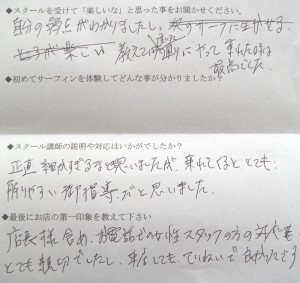 ◆スクールを受けて「楽しいな」と思った事をお聞かせください。
自分の弱点がわかりましたし、
教えて 通りにやって 乗れたのは
最高でした
◆初めてサーフィンを体験してどんな事が分かりましたか?
◆スクール講師の説明や対応はいかがでしたか?
正直 細かすぎるなと思いましたが、乗れてくると、とても
解りやすい御指導だと思いました。
◆最後にお店の第一印象を教えて下さい
店長様含め、お電話での女性スタッフの方の対応も
とても親切でしたし、来店しても ていねいで 良かったです